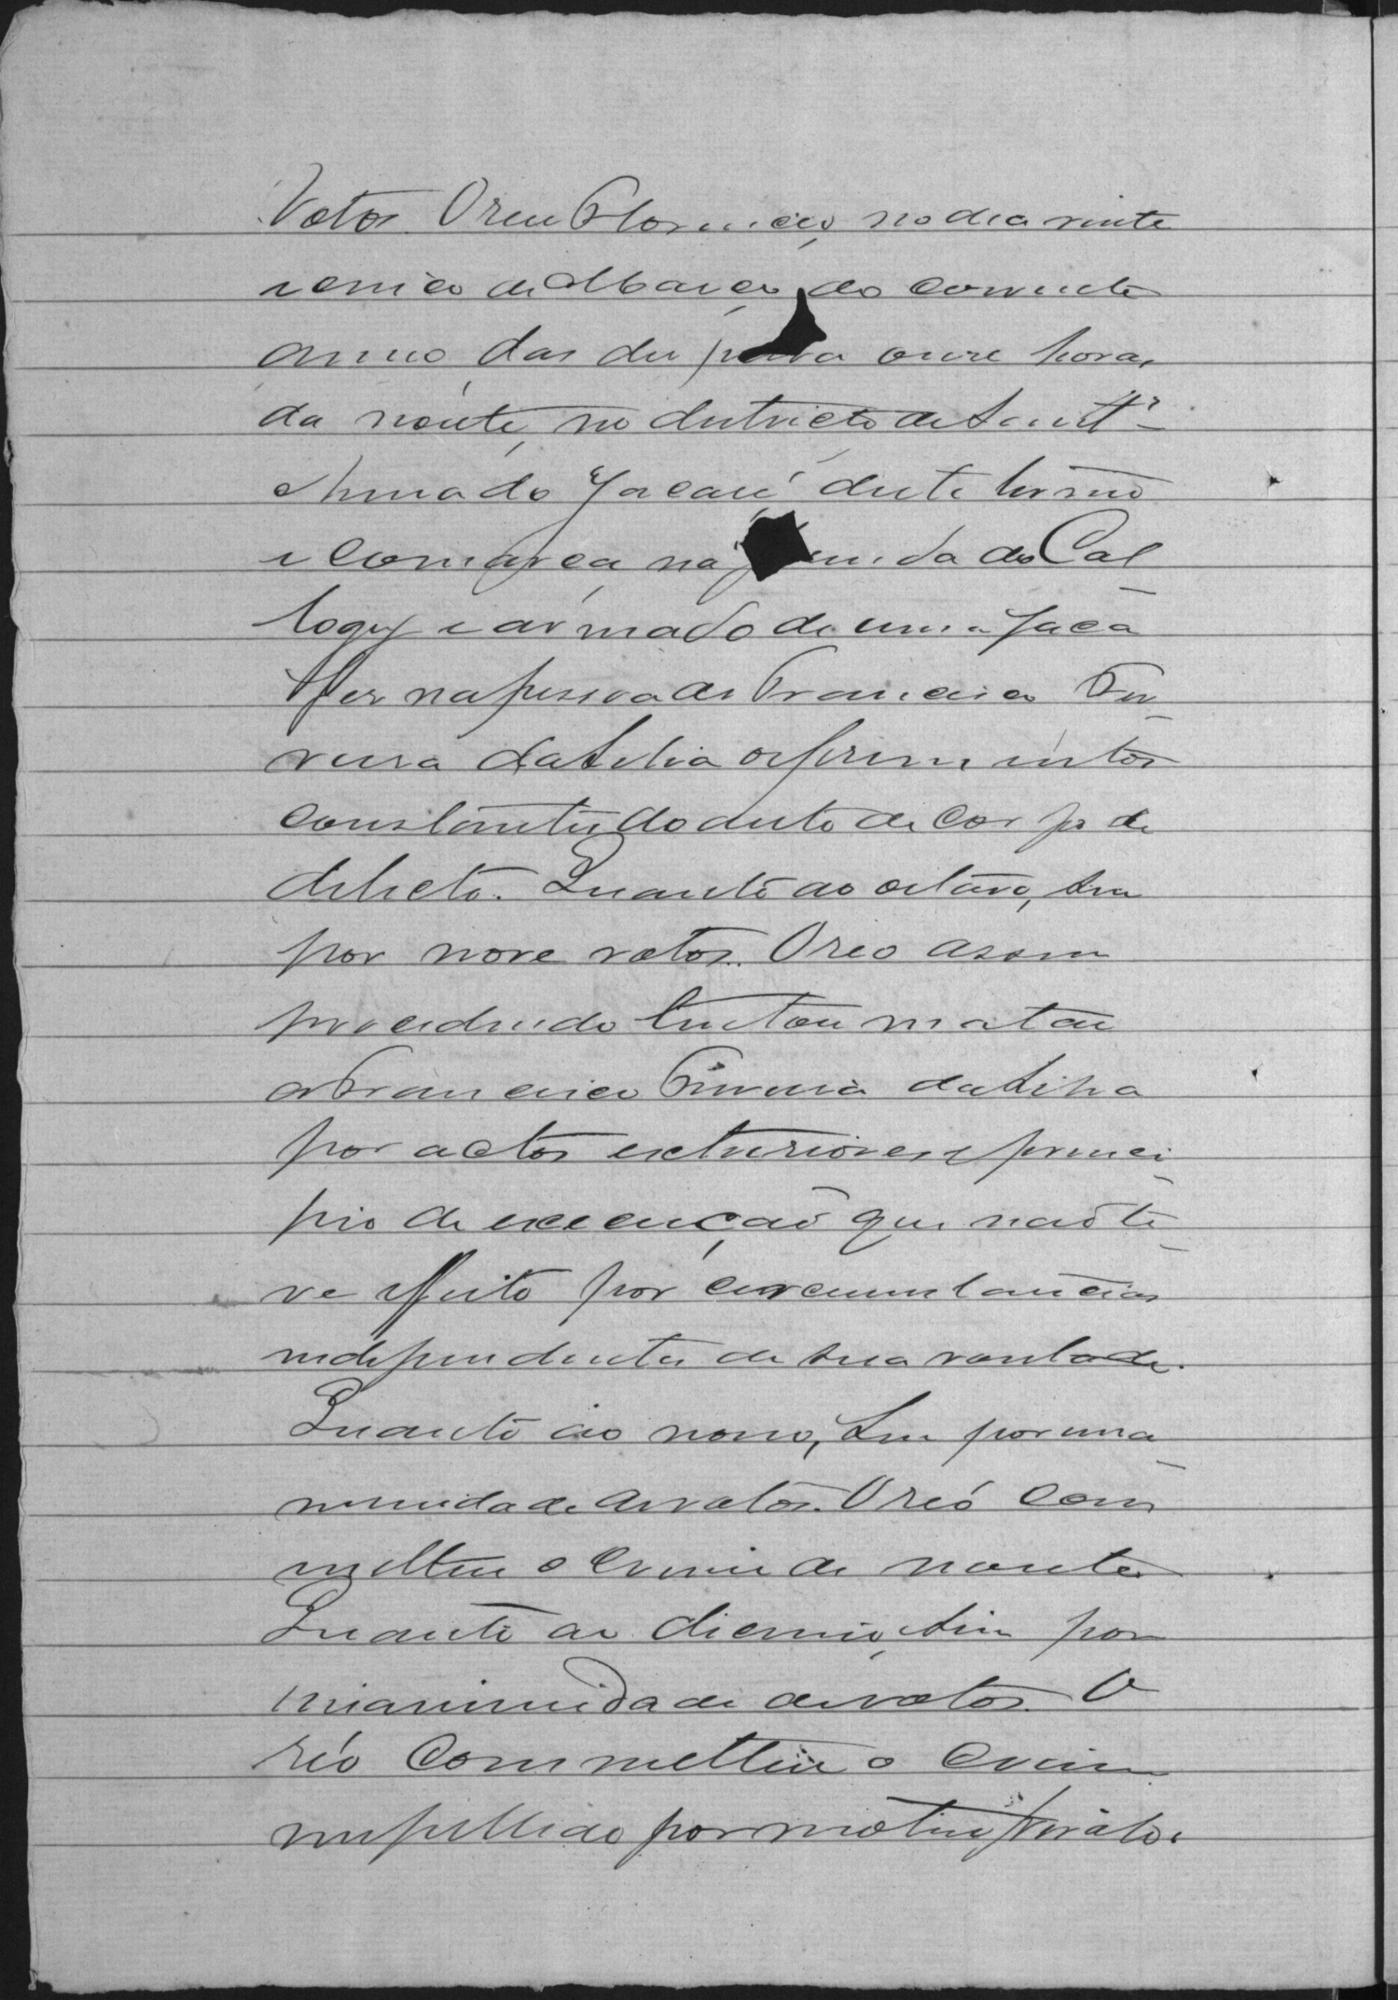 Votos. O reu Florencio, no dia vinte
e cinco de Março do corrente
anno das des para onze horas
da noute, no districto de Sant'
Anna do Jacaré deste termo
e comarca, na do Cal
e armado de uma faca
fez na pessoa de Francisco Fer
reira da Silva os ferimentos
constantes do auto de corpo de
delicto. Quanto ao oitavo, sim
por nove votos. O reo assim
procedendo tentou matar
a Francisco Ferreira da Silva
por actos exteriores e princi
pio de execução que não te
ve effeito por circumstancias
independentes de sua vontade.
Quanto ao nono, sim por una
nimidade de votos. O reo com
metteu o crime de noute.
Quanto ao decimo, sim por
unanimidade de votos. O
réo commetteu o crime
impellido por motivo frivolo.